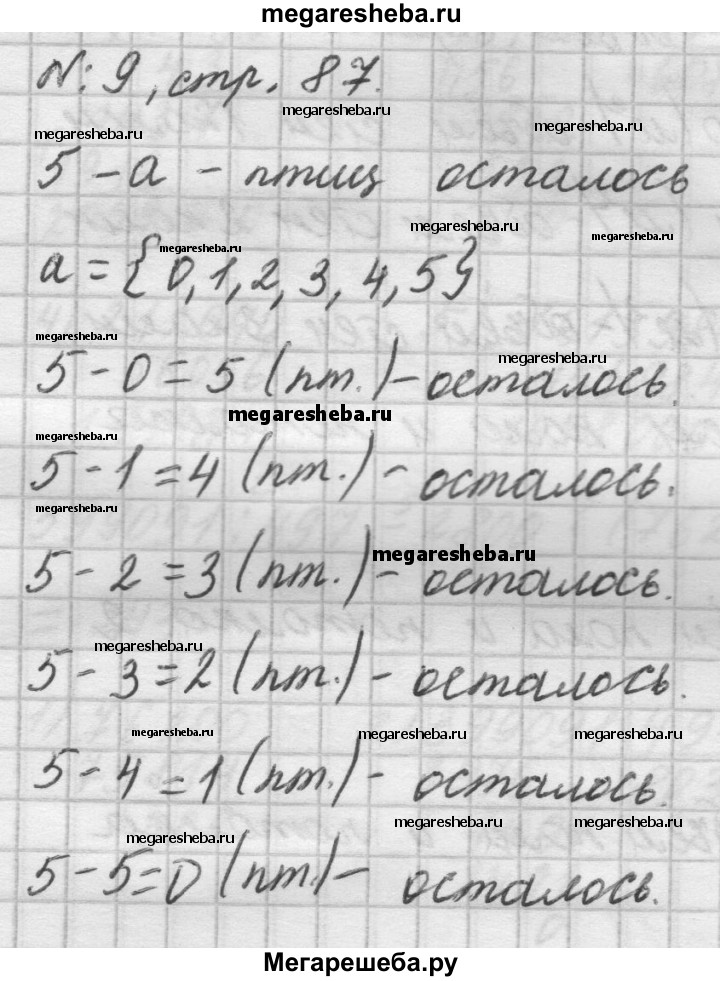 megaresheba.ru
N: 9, стр. 87.
megaresheba.ru
megaresheba.ru
megaresheba.ru
5 - а - птиц осталось
megaresheba.ru
megaresheba.ru
megaresheba.ru
а = {0, 1, 2, 3, 4, 5}
megaresheba.ru
megaresheba.ru
5 - 0 = 5 (пт.) - осталось.
megaresheba.ru
megaresheba.ru
5 - 1 = 4 (пт.) - осталось.
megaresheba.ru
megaresheba.ru
5 - 2 = 3 (пт.) - осталось.
megaresheba.ru
5 - 3 = 2 (пт.) - осталось.
megaresheba.ru
megaresheba.ru
megaresheba.ru
5 - 4 = 1 (пт.) - осталось.
megaresheba.ru
megaresheba.ru
megaresheba.ru
5 - 5 = 0 (пт.) - осталось.
Мегарешеба.ру